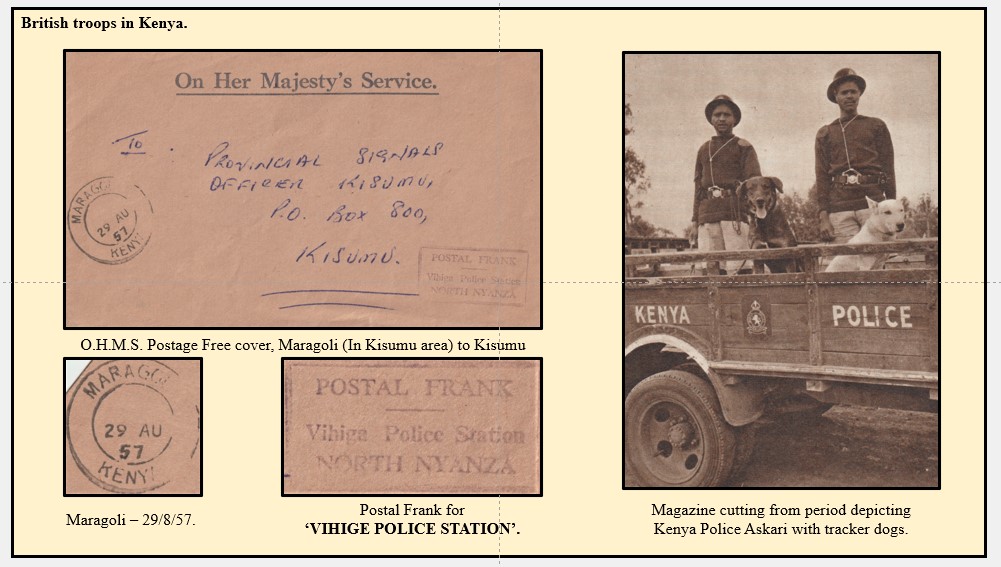 British troops in Kenya.
On Her Majesty's Service.
To
PROVINCIAL SIGNALS
OFFICER KISUMU,
P.O. BOX 800,
KISUMU.
MARAGOLI
29 AU
57
KENYA
POSTAL FRANK
Vihiga Police Station
NORTH NYANZA
KENYA
POLICE
O.H.M.S. Postage Free cover, Maragoli (In Kisumu area) to Kisumu
MARAGOLI
29 AU
57
KENYA
POSTAL FRANK
Vihiga Police Station
NORTH NYANZA
Maragoli – 29/8/57.
Postal Frank for
‘VIHIGE POLICE STATION’.
Magazine cutting from period depicting
Kenya Police Askari with tracker dogs.